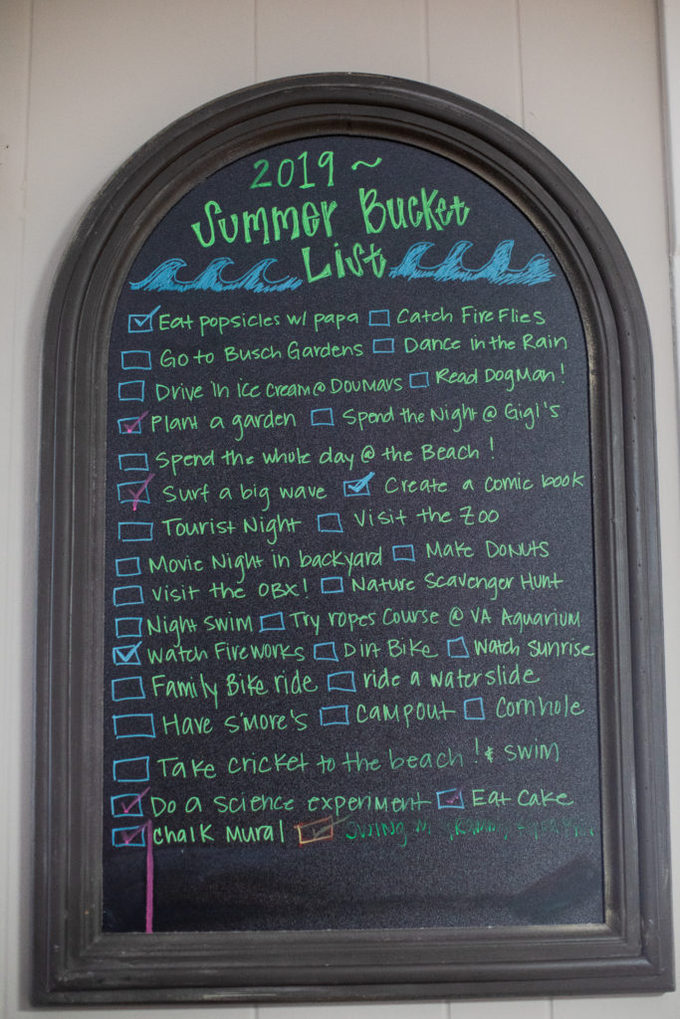 2019 ~
Summer Bucket
List
Eat popsicles w/ papa Catch Fire Flies
Go to Busch Gardens Dance in the Rain
Drive in ice cream @ Doumars Read Dog Man!
Plant a garden Spend the Night @ Gigi's
Spend the whole day @ the Beach!
Surf a big wave Create a comic book
Tourist Night Visit the Zoo
Movie Night in backyard Make Donuts
Visit the OBX! Nature Scavenger Hunt
Night swim Try ropes Course @ VA Aquarium
Watch Fireworks Dirt Bike Watch sunrise
Family Bike ride ride a waterslide
Have s'more's campout Cornhole
Take cricket to the beach! & swim
Do a science experiment Eat Cake
Chalk Mural